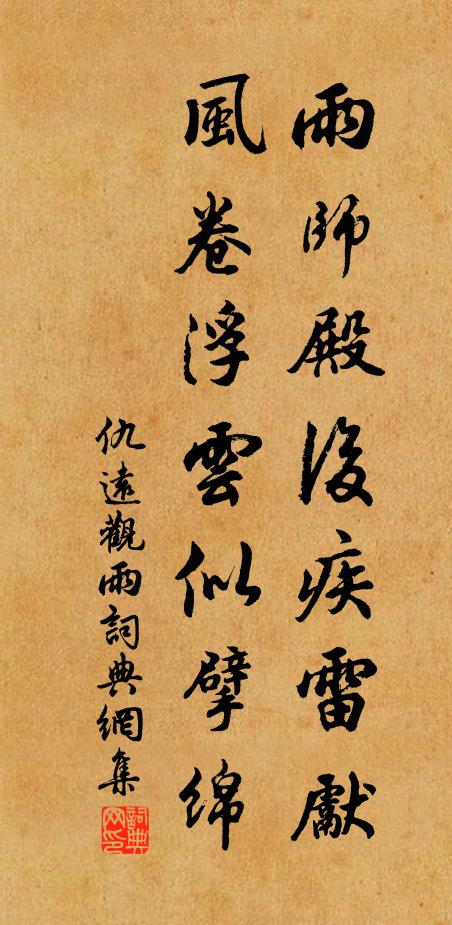 雨師殿後疾雷獻
風卷浮雲似擘綿
仇遠觀雨詞典網集
詞典網印